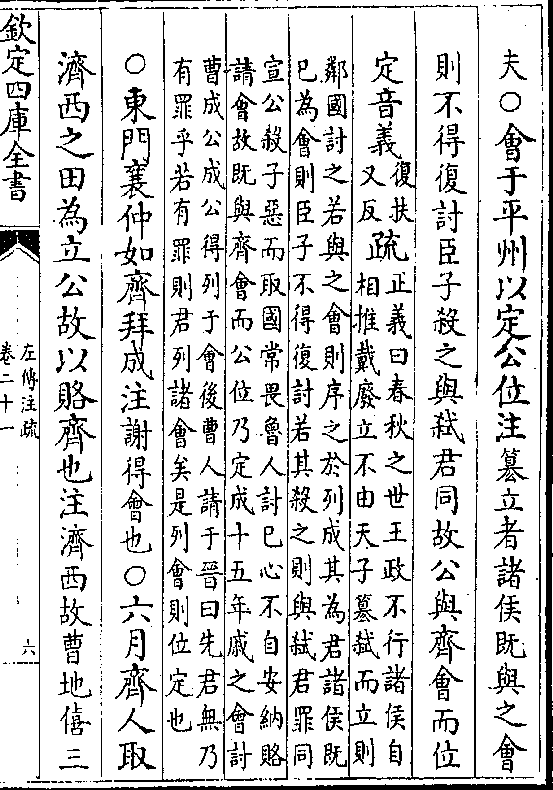 夫○會于平州以定公位注篡立者諸侯既與之會
則不得復討臣子殺之與弑君同故公與齊會而位
定音義復扶又反疏正義曰春秋之世王政不行諸侯自
相推戴廢立不由天子篡弑而立則
鄰國討之若與之會則序之於列成其為君諸侯既
已為會則臣子不得復討若其殺之則與弑君罪同
宣公殺子惡而取國常畏魯人討已心不自安納賂
請會故既與齊會而公位乃定成十五年戚之會討
曹成公成公得列于會後曹人請于晉曰先君無乃
有罪乎若有罪則君列諸會矣是列會則位定也
○東門襄仲如齊拜成注謝得會也○六月齊人取
濟西之田為立公故以賂齊也注濟西故曹地僖三
欽定四庫全書
左傳注疏
卷二十一
六